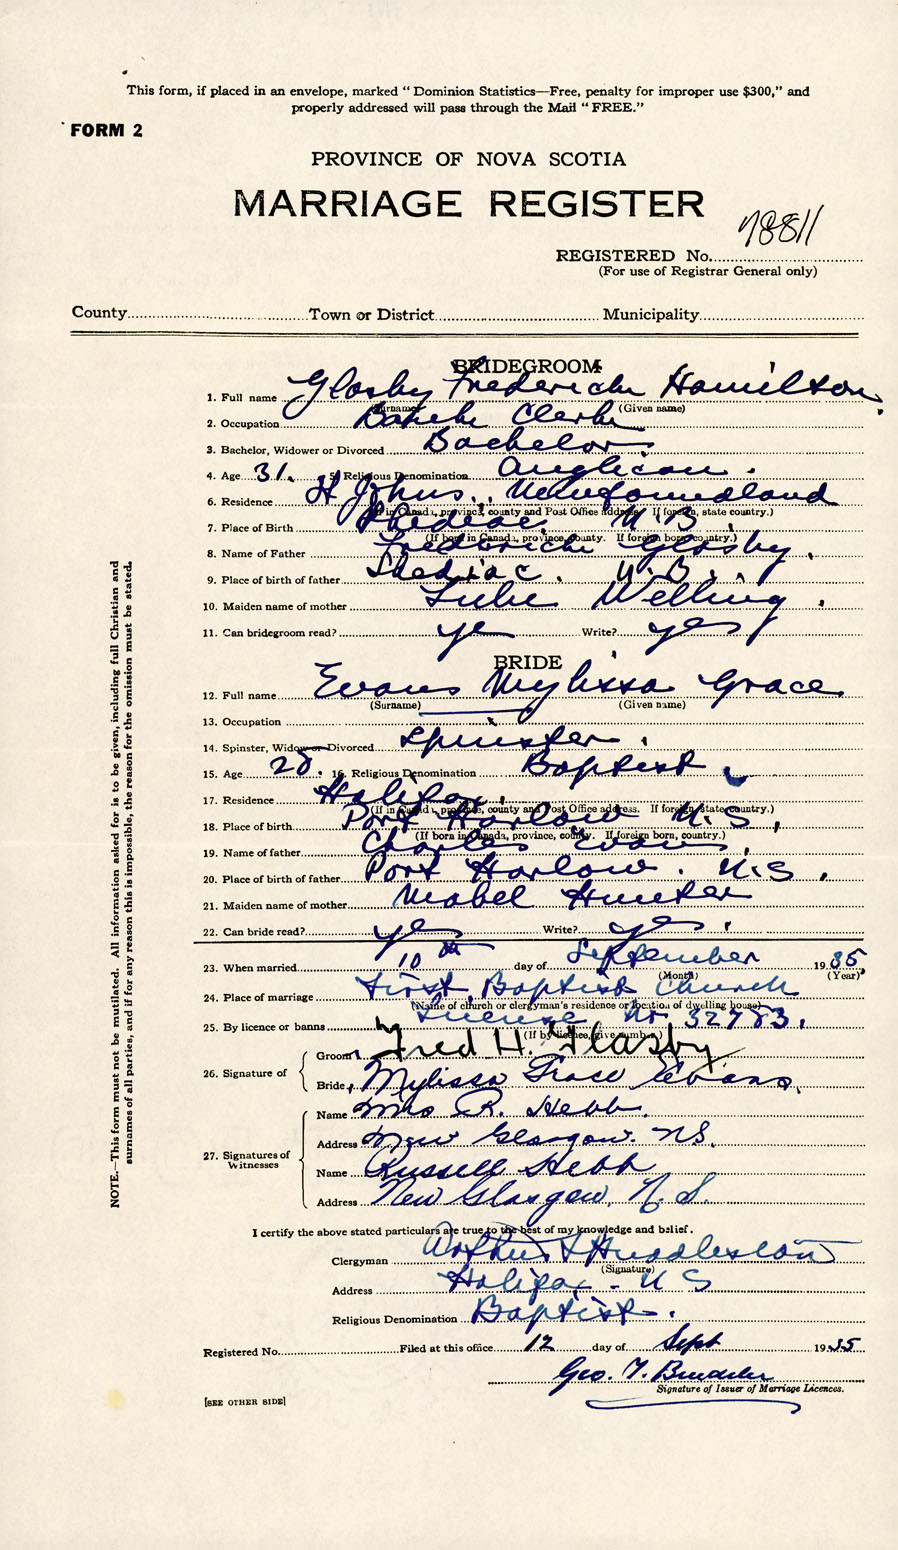 This form, if placed in an envelope, marked “ Dominion Statistics—Free, penalty for improper use $300,” and
properly addressed will pass through the Mail “ FREE.”
FORM 2
PROVINCE OF NOVA SCOTIA
MARRIAGE REGISTER
78811
REGISTERED No.
(For use of Registrar General only)
County Town or District Municipality
BRIDEGROOM
1. Full name Glasby Frederick Hamilton
(Surname) (Given name)
2. Occupation Bank Clerk
3. Bachelor, Widower or Divorced Bachelor
4. Age 31. 5. Religious Denomination Anglican.
6. Residence St Johns, Newfoundland
(If in Canada, province, county and Post Office address. If foreign, state country.)
7. Place of Birth Shediac N.B.
(If born in Canada, province, county. If foreign born, country.)
8. Name of Father Frederick Glasby.
9. Place of birth of father Shediac. N.B.
10. Maiden name of mother Welling.
11. Can bridegroom read? yes Write? yes
BRIDE
12. Full name Evans Mylissa Grace
(Surname) (Given name)
13. Occupation
14. Spinster, Widow or Divorced Spinster.
15. Age 28. 16. Religious Denomination Baptist
17. Residence Halifax.
(If in Canada, province, county and Post Office address. If foreign, state country.)
18. Place of birth Port Harlow N.S.
(If born in Canada, province, county. If foreign born, country.)
19. Name of father Charles Evans.
20. Place of birth of father Port Harlow. N.S.
21. Maiden name of mother Mabel Hunter
22. Can bride read? yes Write? yes.
23. When married 10th day of September 1935
(Month) (Year)
24. Place of marriage First Baptist Church
(Name of church or clergyman's residence or location of dwelling house)
25. By licence or banns License No. 32783.
(If by licence, give number)
26. Signature of
Groom Fred H. Glasby
Bride, Mylissa Grace Evans.
27. Signatures of
Witnesses
Name Mrs R. Hebb.
Address New Glasgow. N.S.
Name Russell Hebb
Address New Glasgow, N.S.
I certify the above stated particulars are true to the best of my knowledge and belief.
Clergyman Arthur Huddleston
(Signature)
Address Halifax - N S
Religious Denomination Baptist.
Registered No. Filed at this office 12 day of Sept 1935
Geo. T.
Signature of Issuer of Marriage Licences.
[SEE OTHER SIDE]
NOTE.—This form must not be mutilated. All information asked for is to be given, including full Christian and
surnames of all parties, and if for any reason this is impossible, the reason for the omission must be stated.